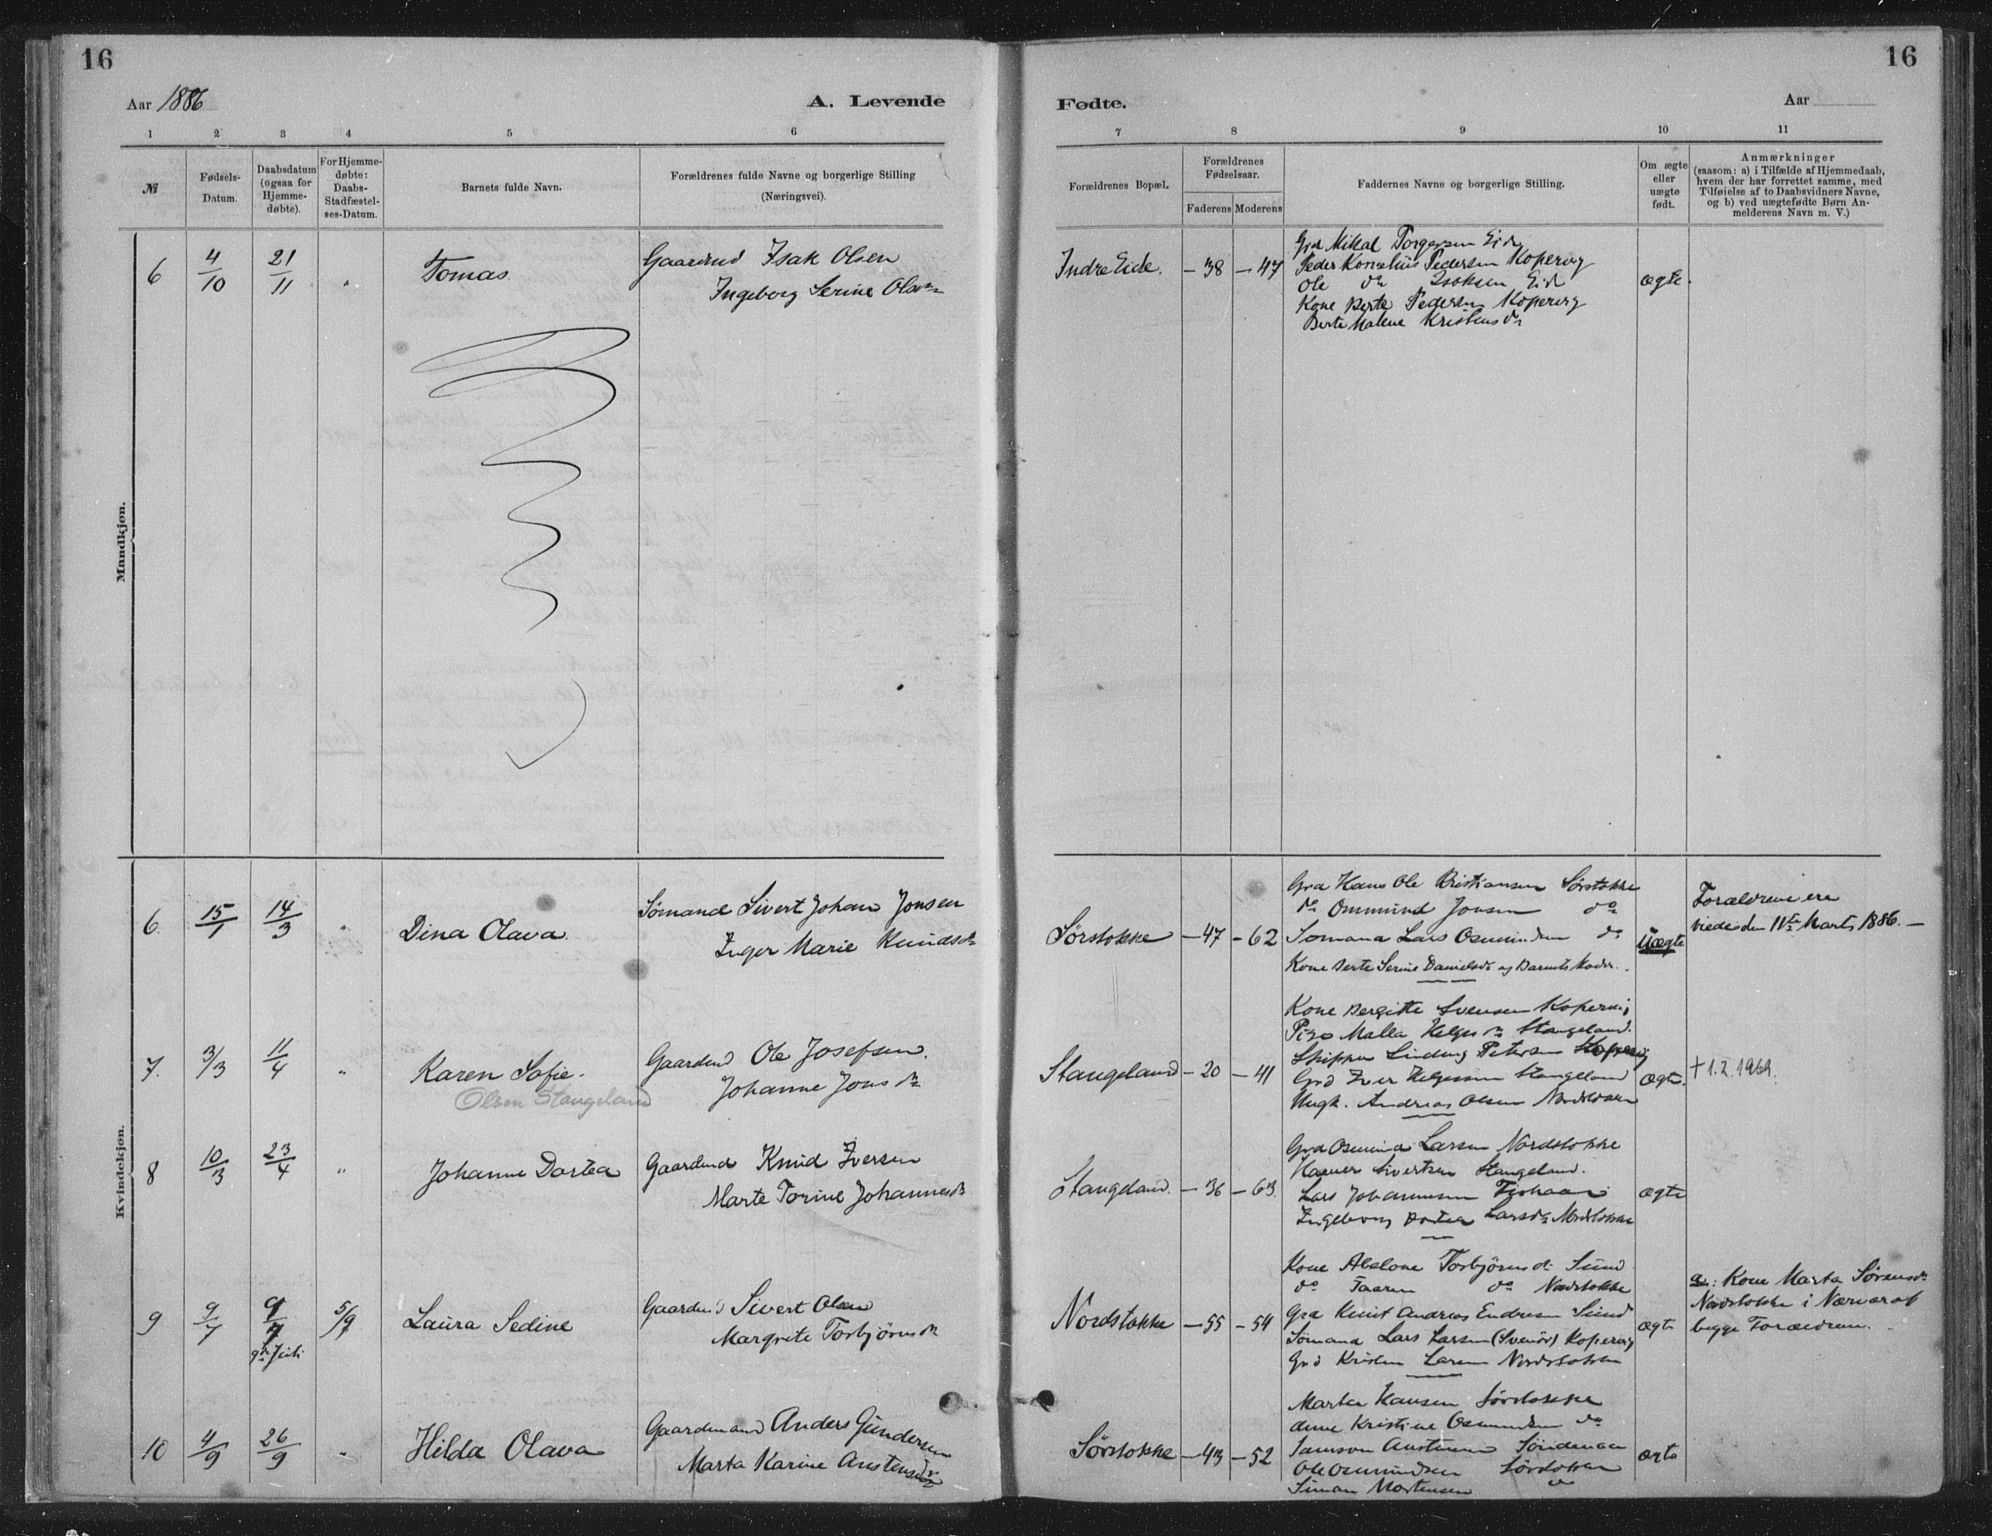 16
16
Aar 1886
A. Levende
Fødte.
Aar
1 2 3 4 5 6 7 8 9 10 11
№
Fødsels-
Datum.
Daabsdatum
(ogsaa for
Hjemme-
døbte).
For Hjemme-
døbte:
Daabs-
Stadfæstel-
ses-Datum.
Barnets fulde Navn.
Forældrenes fulde Navne og borgerlige Stilling
(Næringsvei).
Forældrenes Bopæl.
Forældrenes
Fødselsaar.
Faderens Moderens
Faddernes Navne og borgerlige Stilling.
Om ægte
eller
uægte
født.
Anmærkninger
(saasom: a) i Tilfælde af Hjemmedaab,
hvem der har forrettet samme, med
Tilføielse af to Daabsvidners Navne,
og b) ved uægtefødte Børn An-
melderens Navn m. V.)
Mandkjøn.
6 4/10 21/11 " Tomas.
Gaardmd Isak Olsen
Ingeborg Serine Olsdr
Indre Eide. -38 -47
Grd Mikal Torgersen Eide
Peder Kornelius Pedersen Kopervig
Ole do Isaksen Eid
Kone Berte Pedersen Kopervig
Berte Malene Kristensdr
ægte.
Kvindekjøn.
6. 15/1 14/3 " Dina Olava.
Sømand Sivert Johan Jonsen
Inger Marie Knudsdr
Sørstokke -47 -62
Grd Hans Ole Kristiansen Sørstokke
do Ommund Jonsen do
Sømand Lars Osmundsen do
Kone Berte Serine Danielsdr og Barnets Moder.
Uægte
Forældrene ere
viede den 11te Marts 1886.-
7. 3/3 11/4 " Karen Sofie.
Olsen Stangeland
Gaardmd Ole Josefsen.
Johanne Jonsdr
Stangeland -20 -41
Kone Bergitte Svensen Kopervig
Pige Malla Helgesdr Stangeland.
Skipper Lindung Petersen Kopervig
Grd Iver Helgesen Stangeland
Ungk. Andreas Olsen
Ægte.
† 1.2.1969.
8 10/3 23/4 " Johanne Dortea
Gaardmd Knud Iversen
Marte Torine Johannesdr
Stangeland. -36 -63.
Grd Osmund Larsen Nordstokke
Sivertsen Stangeland.
Lars Johannesen
Ingeborg Dortea Larsdr Nordstokke
ægte
9 9/7 9/7 5/9 Laura Sedine
9de Juli
Gaardmd Sivert Olsen
Margrete Torbjørnsdr
Nordstokke -55 -54
Kone Abelone Torbjørnsd. Sund
do Taaren do Nordstokke
Grd Knut Andreas Endresen Sund
Sømand Lars Larsen (Svenør) Kopervig
Grd Kristen Larsen Nordstokke
ægte
a: Kone Marta Sørensdr
Nordstokke i Nærvær af
begge Forældrene.
10 4/9 26/9 " Hilda Olava
Gaardmand Anders Gundersen
Marta Karine Austensdr
Sørstokke -43 -52
Martha Hansen Sørstokke
Anne Kristine Osmundsen do
Samson Austensen
Ole Osmundsen Sørstokke
Simon Mortensen do
ægte